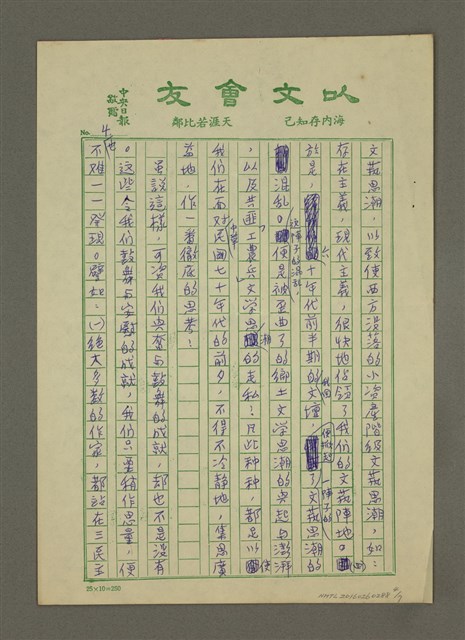 以文會友
海內存知己 天涯若比鄰
中央日報
敬贈
No. 4
文藝思潮,以致使西方沒落的小資產階級文藝思潮,如:
存在主義,現代主義,很快地佔領了我們的文藝陣地。
於是,六十年代前半期的我國文壇,便掀起了文藝思潮的一陣子的
混亂。這陣子的混亂,便是被歪曲了的鄉土文學思潮的突起與澎湃
,以及共匪「工農兵文學」思潮的走私!凡此種種,都足以使
我們在面對中華民國七十年代的前夕,不得不冷靜地,集思廣
益地,作一番徹底的思考!
雖說這樣,可資我們興奮與鼓舞的成就,却也不是沒有
。這些令我們鼓舞與安慰的成就,我們只要稍作思量,便
也不難一一發現。譬如:㈠絕大多數的作家,都站在三民主
25×10=250
NMTL20160260288
4/7